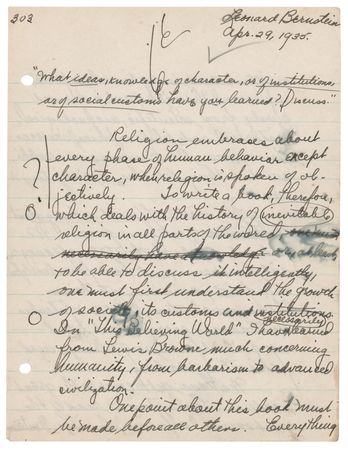 303
Leonard Bernstein
Apr. 29, 1935.
"What ideas, knowledge of character, or of institutions,
or of social customs have you learned? Discuss."
Religion embraces about
every phase of human behavior except
character, when religion is spoken of ob-
jectively. To write a book, therefore,
which deals with the history of (inevitable)
religion in all parts of the world,
to be able to discuss it intelligently,
one must first understand the growth
of society, its customs and institutions.
necessarily
In "This Believing World" I have learned
from Lewis Browne much concerning
humanity, from barbarism to advanced
civilization.
One point about this book must
be made before all others. Everything